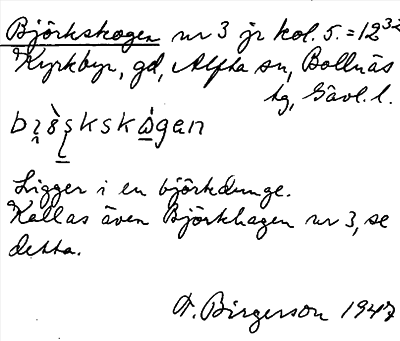 Björkskogen nr 3 jr kol. 5. = 12³²
Kyrkbyn, gd, Alfta sn, Bollnäs
tg, Gävl. l.
Ligger i en björkdunge.
Kallas även Björkhagen nr 3, se
detta.
F. Birgerson 1947